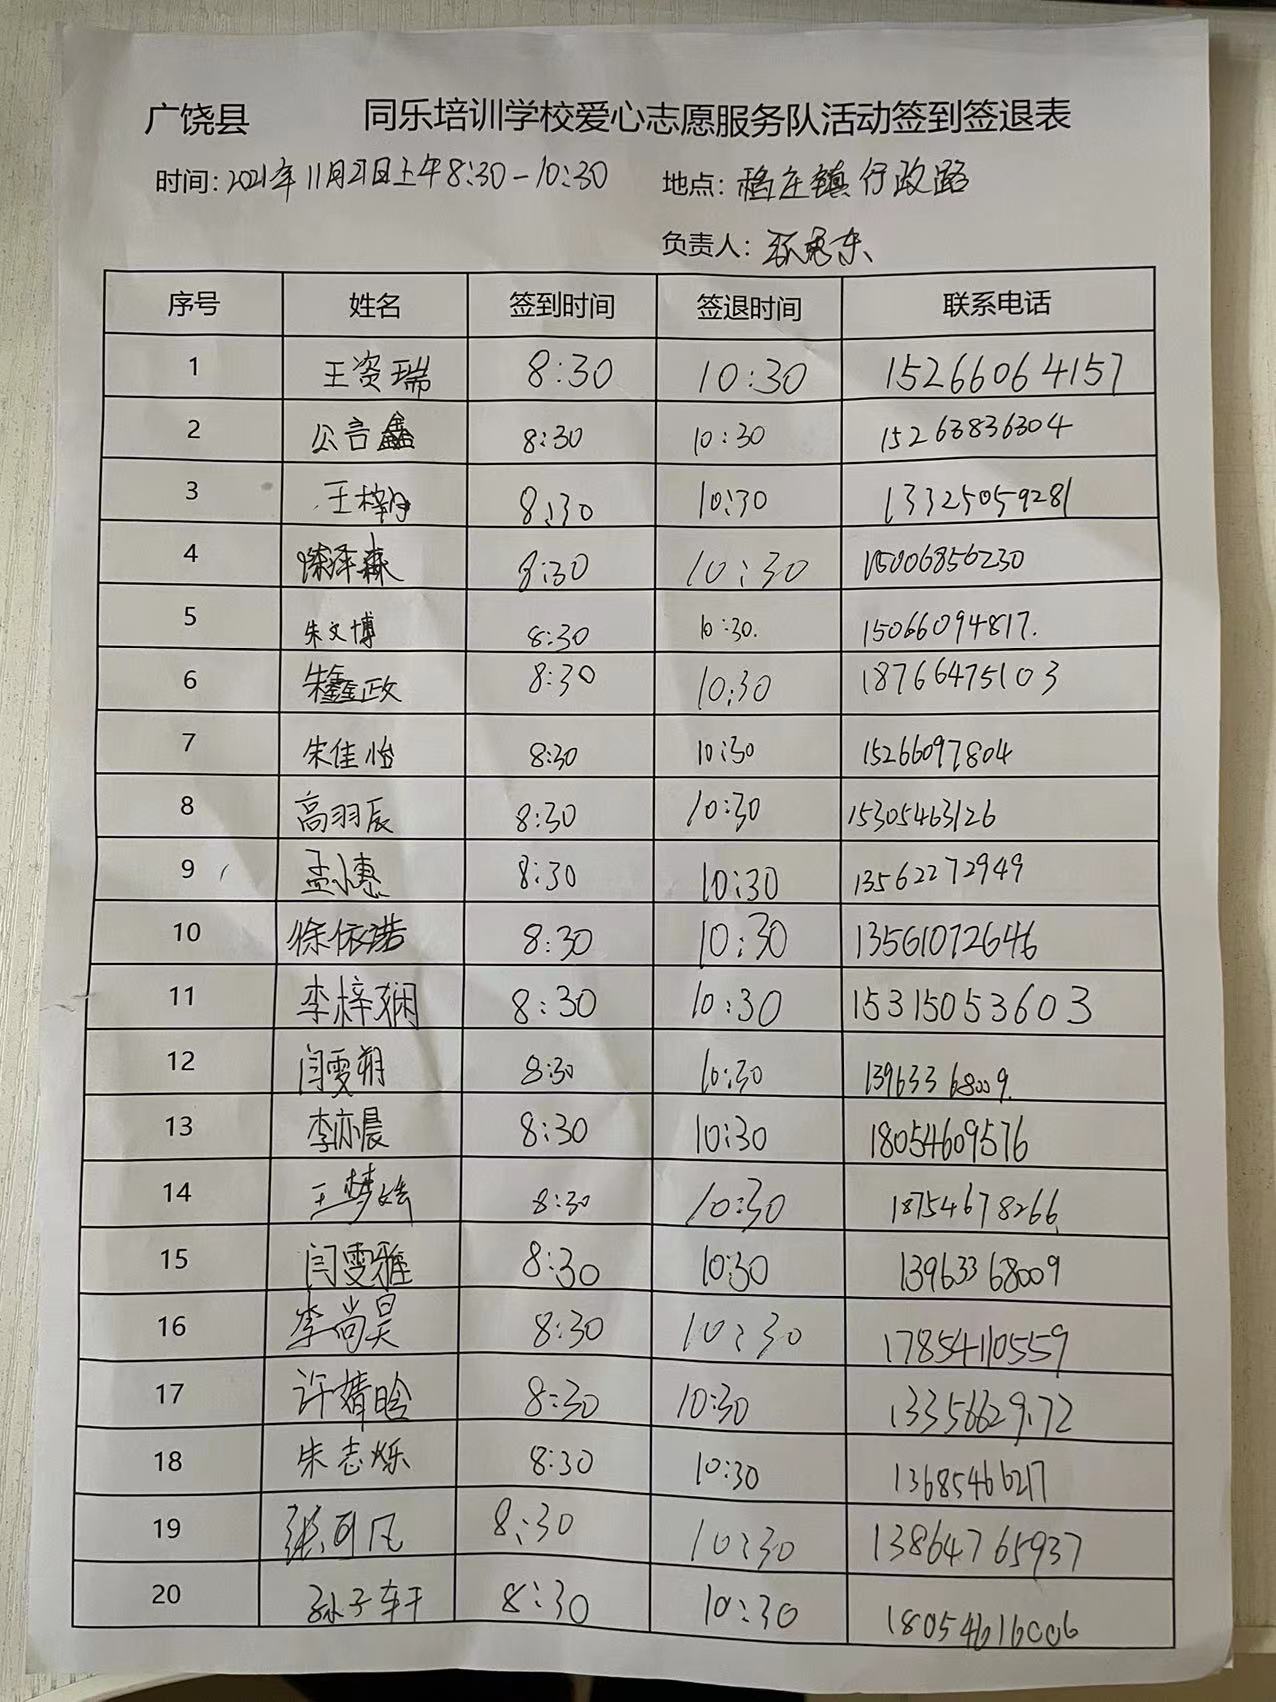 广饶县 同乐培训学校爱心志愿服务队活动签到签退表
时间:2021年11月21日上午8:30-10:30 地点:稻庄镇行政路
负责人:
序号 姓名 签到时间 签退时间 联系电话
1 王资瑞 8:30 10:30 15266064157
2 公言鑫 8:30 10:30 15263836304
3 王梓 8:30 10:30 13325059281
4 泽森 8:30 10:30 15006856230
5 朱文博 8:30 10:30. 15066094817.
6 朱鑫政 8:30 10:30 18766475103
7 朱佳怡 8:30 10:30 15266097804
8 高羽辰 8:30 10:30 15305463126
9 孟小惠 8:30 10:30 13562272949
10 徐依诺 8:30 10:30 13561072646
11 李梓娴 8:30 10:30 15315053603
12 闫雯朔 8:30 10:30 13963368009.
13 李亦晨 8:30 10:30 18054609576
14 王梦 8:30 10:30 18754678266
15 闫雯雅 8:30 10:30 13963368009
16 李尚昊 8:30 10:30 17854110559
17 许婧晗 8:30 10:30
18 朱志烁 8:30 10:30 13685466217
19 张可凡 8:30 10:30 13864765937
20 孙子轩 8:30 10:30 18054616006